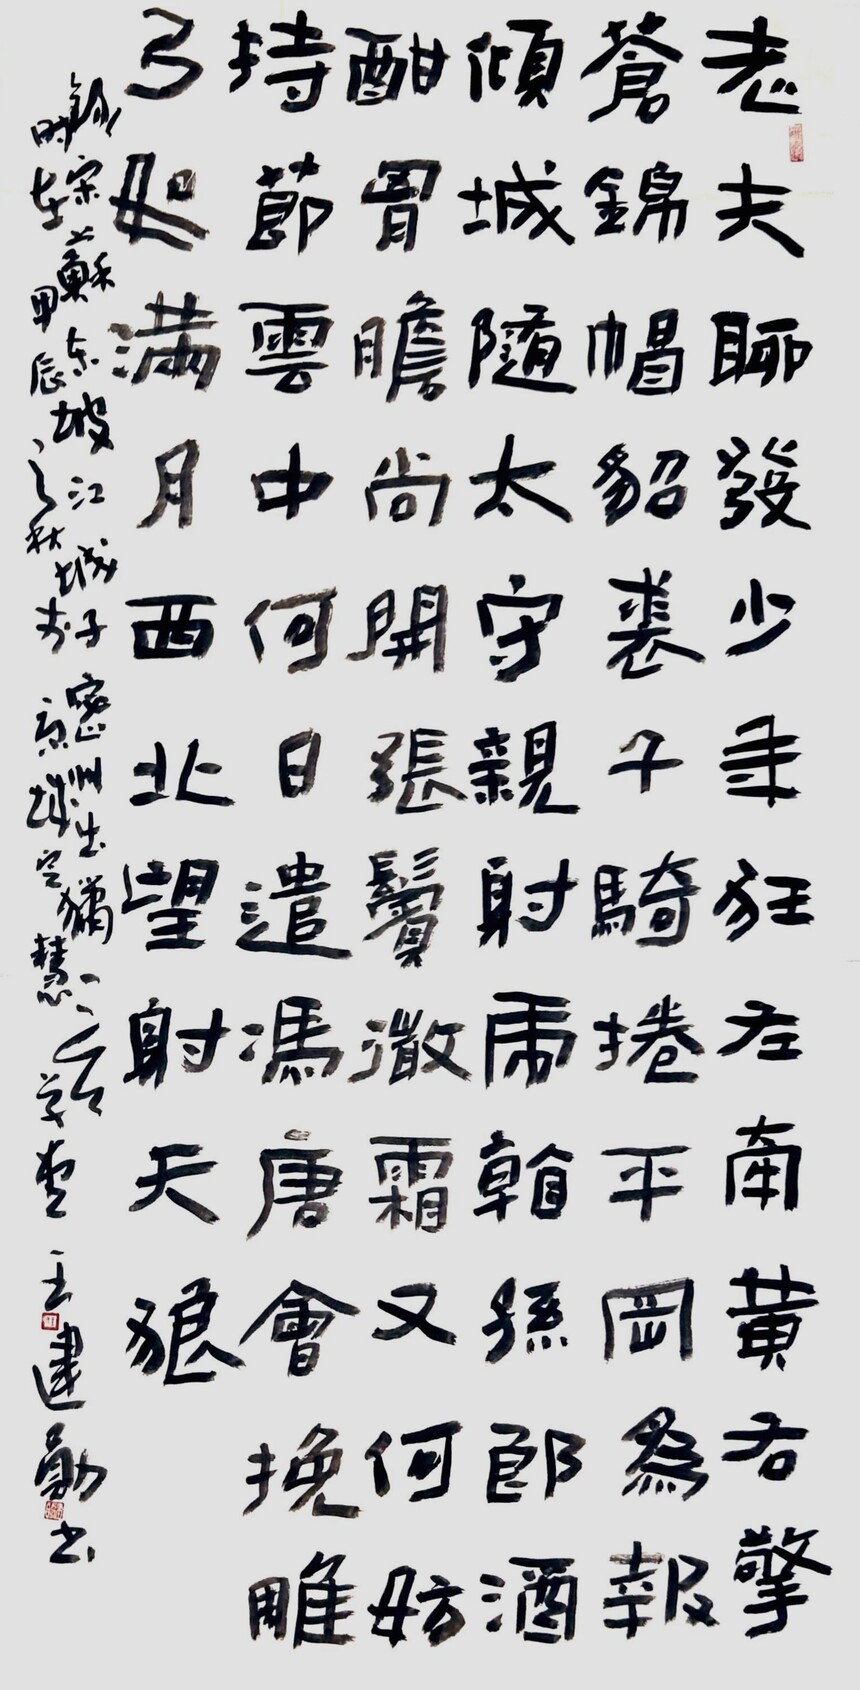 老夫聊發少年狂左牽黃右擎
蒼錦帽貂裘千騎捲平岡為報
傾城隨太守親射虎看孫郎酒
酣胷膽尚開張鬢微霜又何妨
持節雲中何日遣馮唐會挽雕
弓如滿月西北望射天狼
錄宋蘇東坡江城子密州出獵
時在甲辰之秋於京城定慧學堂王建勛書